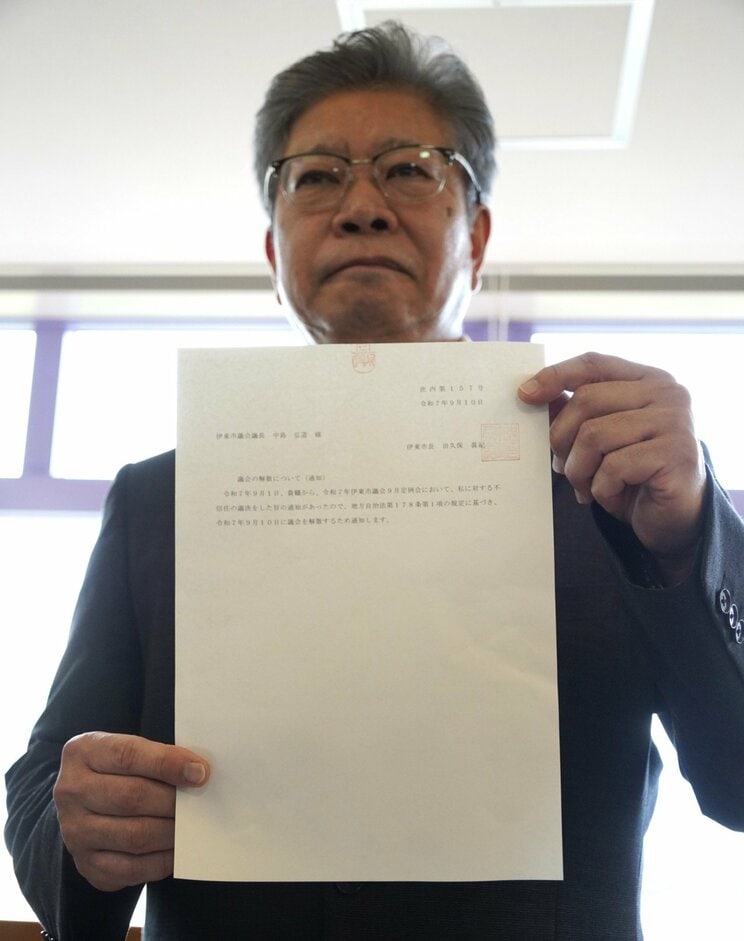 庶内第１５７号
令和７年９月１０日
伊東市議会議長　中島　弘道　様
伊東市長　田久保　眞紀
議会の解散について（通知）
令和７年９月１日、貴職から、令和７年伊東市議会９月定例会において、私に対する不
信任の議決をした旨の通知があったので、地方自治法第１７８条第１項の規定に基づき、
令和７年９月１０日に議会を解散するため通知します。